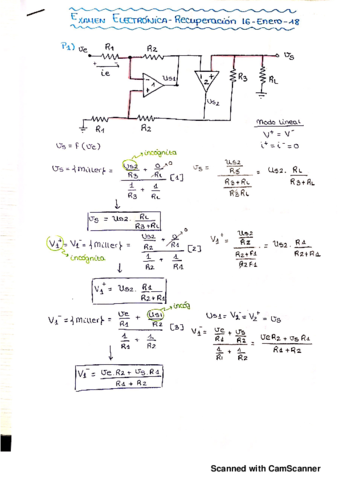 EXAMEN ELECTRÓNICA - Recuperación 16-Enero-18
P1) Ve R1 R2 Vs
ie Us1 1 2 R3 RL
Us2
R1 R2
Modo lineal
V⁺ = V⁻
i⁺ = i⁻ = 0
Us = F(Ue)
incógnita
Us = {Miller} = (Us2/R3 + 0/RL) / (1/R3 + 1/RL) [1] Us = (Us2/R3) / ((R3+RL)/(R3RL)) = Us2 · RL/(R3+RL)
Us = Us2 · RL/(R3+RL)
V1⁺ = V1⁻ = {Miller} = (Us2/R2 + 0/R1) / (1/R2 + 1/R1) [2] V1⁺ = (Us2/R2) / ((R2+R1)/(R2R1)) = Us2 · R1/(R2+R1)
incógnita
V1⁺ = Us2 · R1/(R2+R1)
incóg
V1⁻ = {Miller} = (Ue/R1 + Us1/R2) / (1/R1 + 1/R2) [3] Us1 = V2⁻ = V2⁺ = Us
V1⁻ = (Ue/R1 + Us/R2) / (1/R1 + 1/R2) = (Ue R2 + Us R1)/(R1+R2)
V1⁻ = (Ue·R2 + Us·R1)/(R1+R2)
Scanned with CamScanner